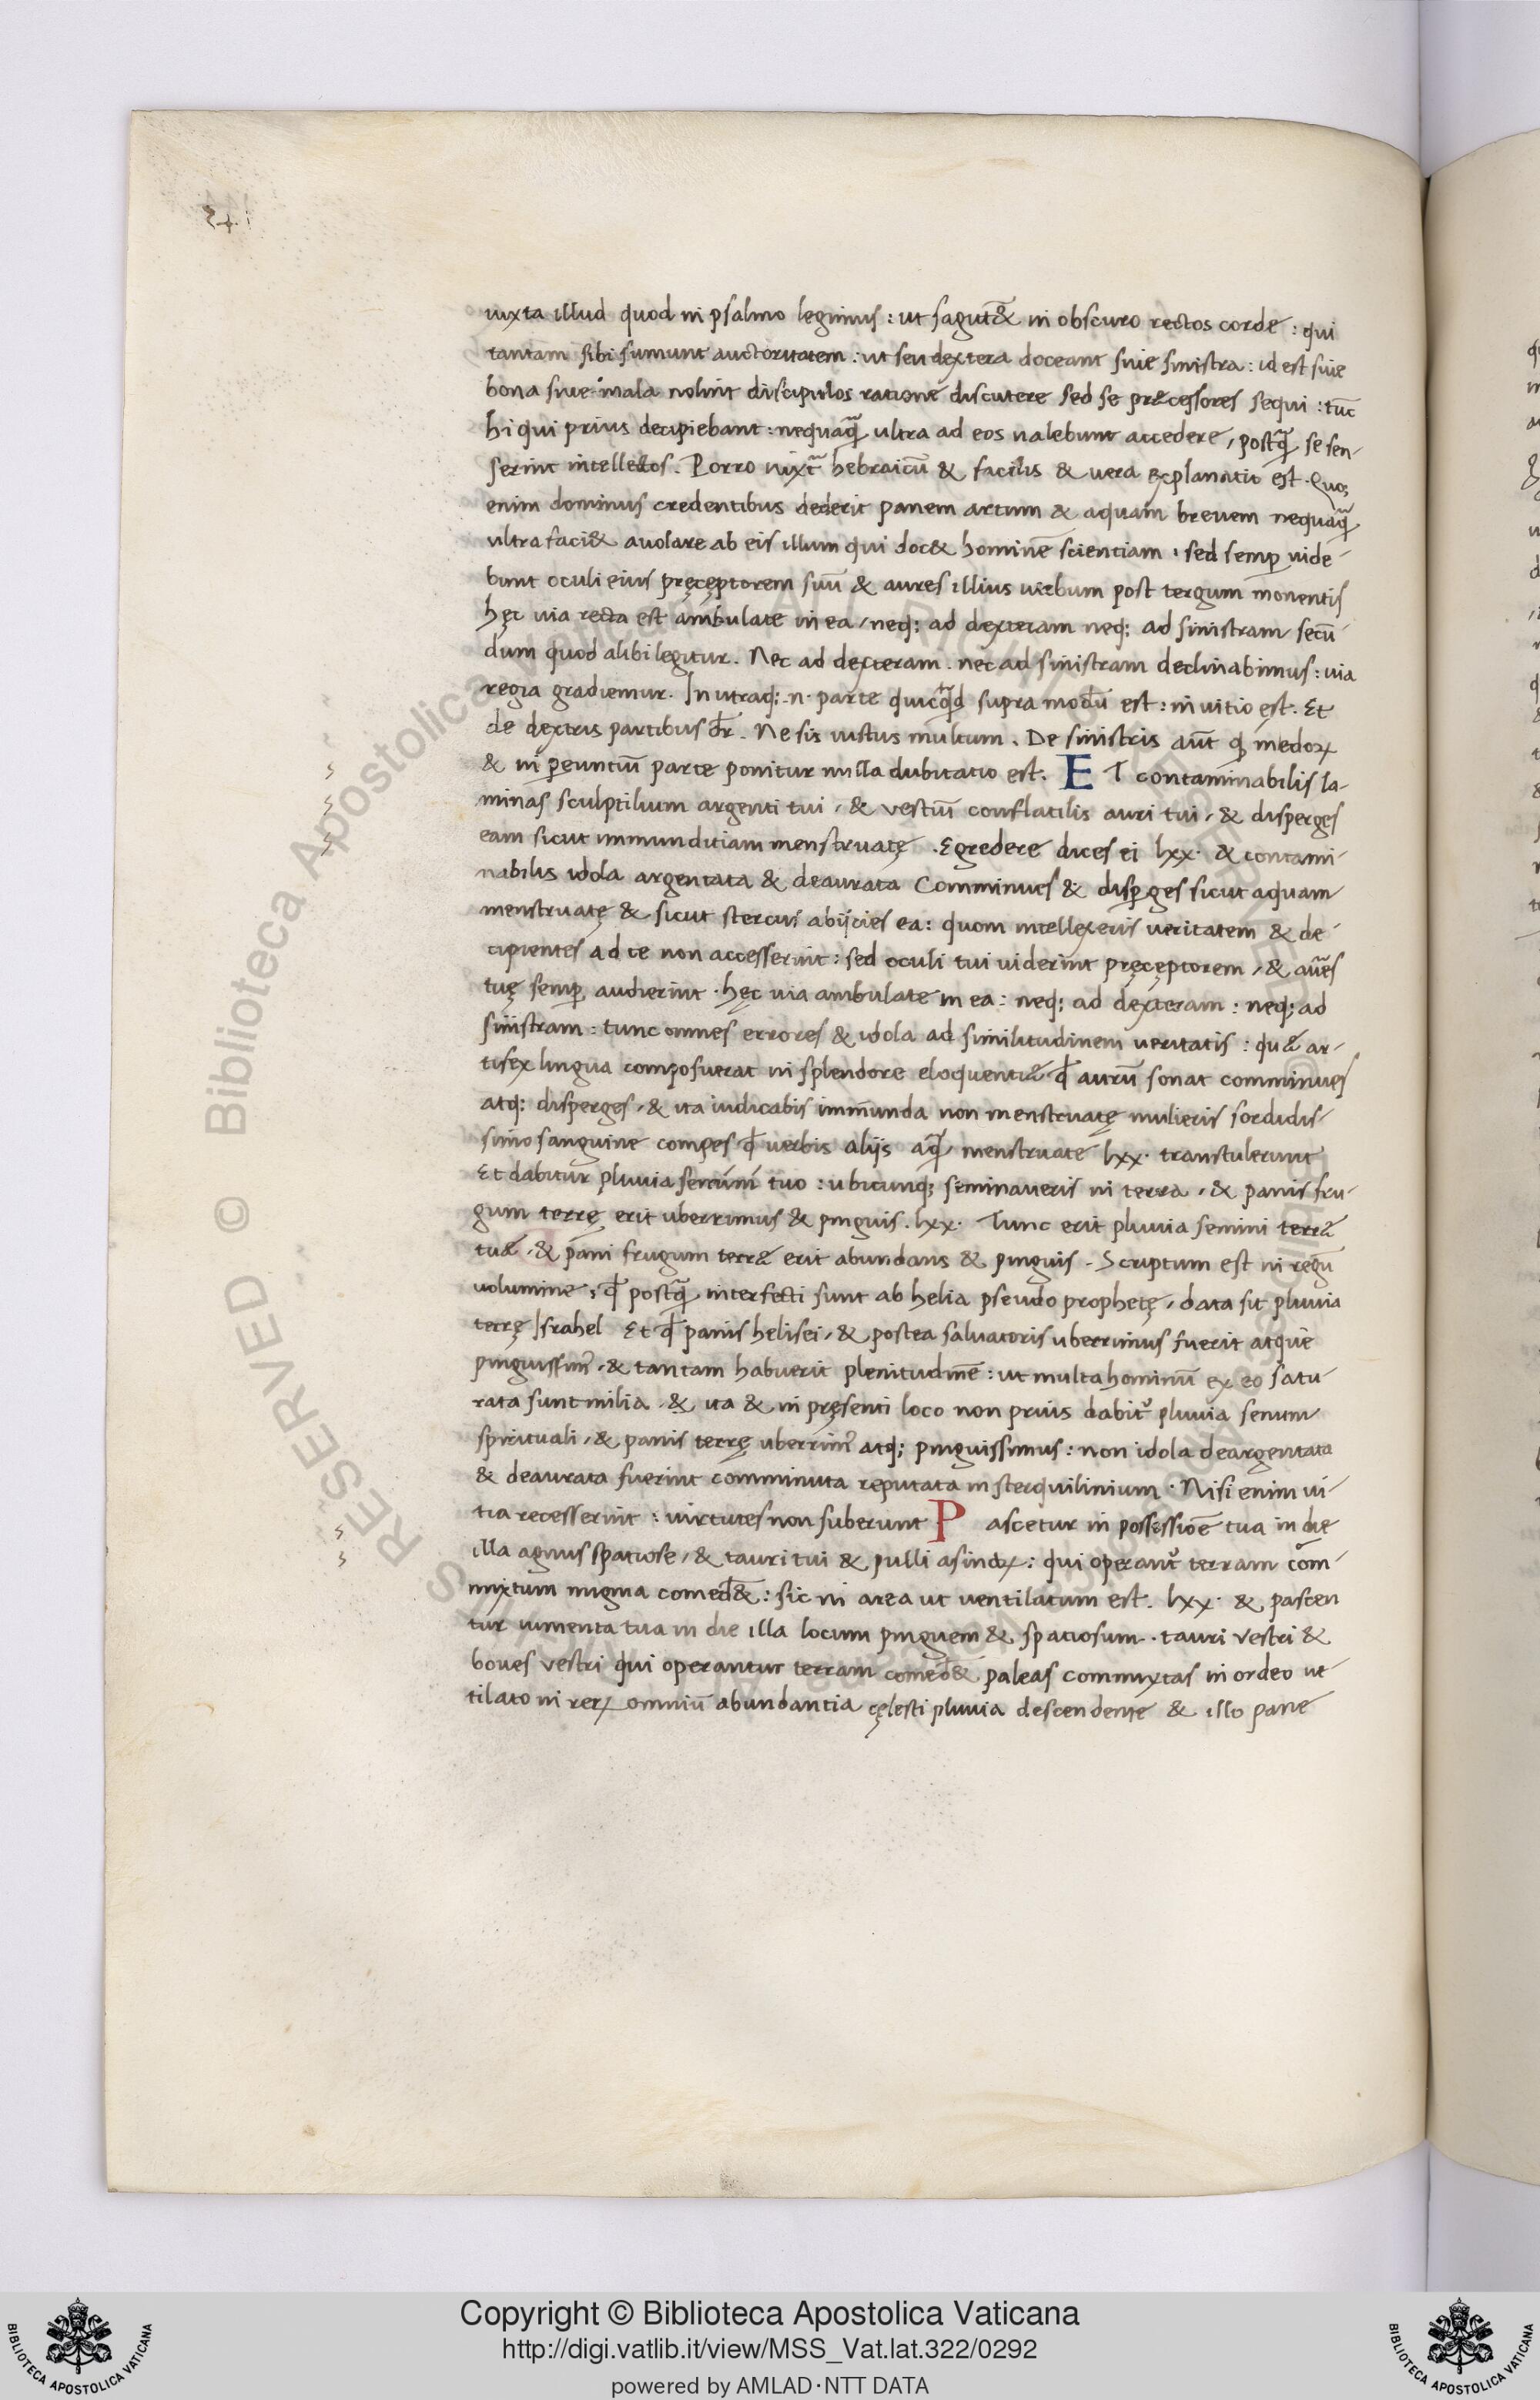 iuxta illud quod in psalmo legimus: ut sagittẽ& in obscuro rectos corde: qui
tantam sibi sumunt auctoritatem: ut seu dextera doceant siue sinistra: id est siue
bona siue mala nolint discipulos ratione discutere sed se præcessores sequi: tũc
hi qui prius decipiebant: nequaq̃ ultra ad eos ualebunt accedere, postq̃ se sen-
serint intellectos. Porro iuxt̃ hebraicũ & facilis & uera explanatio est. Quos
enim dominus credentibus dederit panem artum & aquam breuem nequaq̃
ultra faci& auolare ab eis illum qui doc& hominẽ scientiam, sed semp uide-
bunt oculi eius pręceptorem suũ & aures illius uerbum post tergum monentis
hęc uia recta est ambulate in ea, neq; ad dexteram neq; ad sinistram secũ-
dum quod alibi legitur. Nec ad dexteram. nec ad sinistram declinabimus: uia
regia gradiemur. In utraq; .n. parte quicq̃d supra modũ est: in uitio est. Et
de dextris partibus dr̃. Ne sis iustus multum. De sinistris aũt q̃ in edoꝝ
& in pereuntiũ parte ponitur nulla dubitatio est. ET contaminabilis la-
minas sculptilium argenti tui, & vestiũ conflatilis auri tui, & disperges
eam sicut immunditiam menstruatę. Egredere dices ei lxx. & contami-
nabilis idola argentata & deaurata Comminues & disp̱ges sicut aquam
menstruatę & sicut stercus abijcies ea: quom intellexeris ueritatem & de-
cipientes ad te non accesserint: sed oculi tui uiderint pręceptorem, & aũes
tuę semp audierint. hęc uia ambulate in ea: neq; ad dexteram: neq; ad
sinistram: tunc omnes errores & idola ad similitudinem ueritatis: quæ ar-
tifex lingua composuerat in splendore eloquentiæ q̃ aurũ sonat comminues
atq; disperges, & ita iudicabis immunda non menstruatę mulieris sordidis-
simo sanguine compes q̃ uerbis alijs aq̃ menstruate lxx. transtulerunt
Et dabitur pluuia semini tuo: ubicunq; seminaueris in terra, & panis fru-
gum terrę erit uberrimus & pinguis. lxx. Tunc erit pluuia semini terræ
tuæ, & pani frugum terræ erit abundans & pinguis. Scriptum est in regũ
uolumine: q̃ postq̃ interfecti sunt ab helia pseudo prophetę, data sit pluuia
terrę Israhel Et q̃ panis helisei, & postea saluatoris uberrimus fuerit atque
pinguissim⁹, & tantam habuerit plenitudinẽ: ut multa hominũ ex eo satu-
rata sunt milia. & ita & in pręsenti loco non prius dabit᷑ pluuia semini
spirituali, & panis terrę uberrim⁹ atq; pinguissimus: non idola deargentata
& deaurata fuerint comminuta reputata in sterquilinium. Nisi enim ui-
tia recesserint: uirtutes non suberunt Pascetur in possessiõe tua in die
illa agnus spatiose, & tauri tui & pulli asinoꝝ: qui operant᷑ terram com-
mixtum migma comed&: sic in area ut uentilatum est. lxx. & pascen
tur iumenta tua in die illa locum pinguem & spatiosum. tauri vestri &
boues vestri qui operantur terram comed& paleas commixtas in ordeo ut
tilato in reꝝ omniũ abundantia cęlesti pluuia descendente & illo pane
RESERVED © Biblioteca Apostolica Vaticana
Copyright © Biblioteca Apostolica Vaticana
http://digi.vatlib.it/view/MSS_Vat.lat.322/0292
powered by AMLAD·NTT DATA
BIBLIOTECA APOSTOLICA VATICANA
BIBLIOTECA APOSTOLICA VATICANA